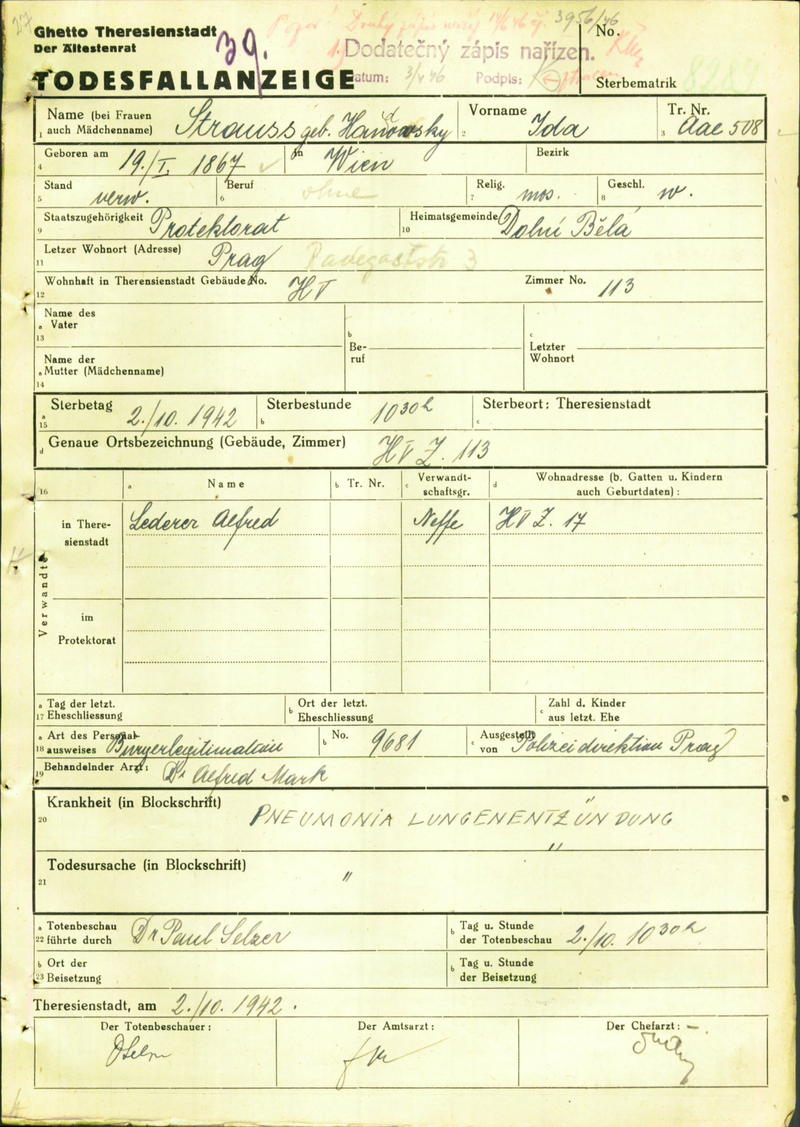 27
Ghetto Theresienstadt
Der Ältestenrat
39.
3956/46
No.
1. Dodatečný zápis nařízen.
TODESFALLANZEIGE
Datum: 3/V 46 Podpis:
Sterbematrik
Name (bei Frauen auch Mädchenname) Strauss geb. Hanowsky
d
1
Vorname Ida
2
Tr. Nr. Aae 508
3
Geboren am 19./I. 1867 in Wien Bezirk
4
Stand verw. Beruf ohne Relig. mos. Geschl. w.
5 6 7 8
Staatszugehörigkeit Protektorat Heimatsgemeinde Dolní Bělá
9 10
Letzer Wohnort (Adresse) Prag 3
11
Wohnhaft in Therensienstadt Gebäude No. HV Zimmer No. 113
12
Name des
a Vater
13
b Be-
ruf
c Letzter
Wohnort
Name der
a Mutter (Mädchenname)
14
Sterbetag 2./10. 1942 Sterbestunde 10 30 h Sterbeort: Theresienstadt
a 15 b c
d Genaue Ortsbezeichnung (Gebäude, Zimmer) HV Z. 113
16 a Name b Tr. Nr. c Verwandt-
schaftsgr. d Wohnadresse (b. Gatten u. Kindern
auch Geburtdaten):
Verwandte
in There-
sienstadt
Lederer Alfred Neffe HV Z. 17
im
Protektorat
a Tag der letzt.
17 Eheschliessung
b Ort der letzt.
Eheschliessung
c Zahl d. Kinder
aus letzt. Ehe
a Art des Personal-
18 ausweises Bürgerlegitimation b No. 9681 c Ausgestellt
von Polizeidirektion Prag
19 Behandelnder Arzt: Dr Alfred Mark
Krankheit (in Blockschrift) PNEUMONIA LUNGENENTZÜNDUNG
20
Todesursache (in Blockschrift) " "
21
a Totenbeschau
22 führte durch Dr Paul Selzer
b Tag u. Stunde
der Totenbeschau 2./10. 10 30 h
b Ort der
23 Beisetzung
b Tag u. Stunde
der Beisetzung
Theresienstadt, am 2./10. 1942.
Der Totenbeschauer: Der Amtsarzt: Der Chefarzt: